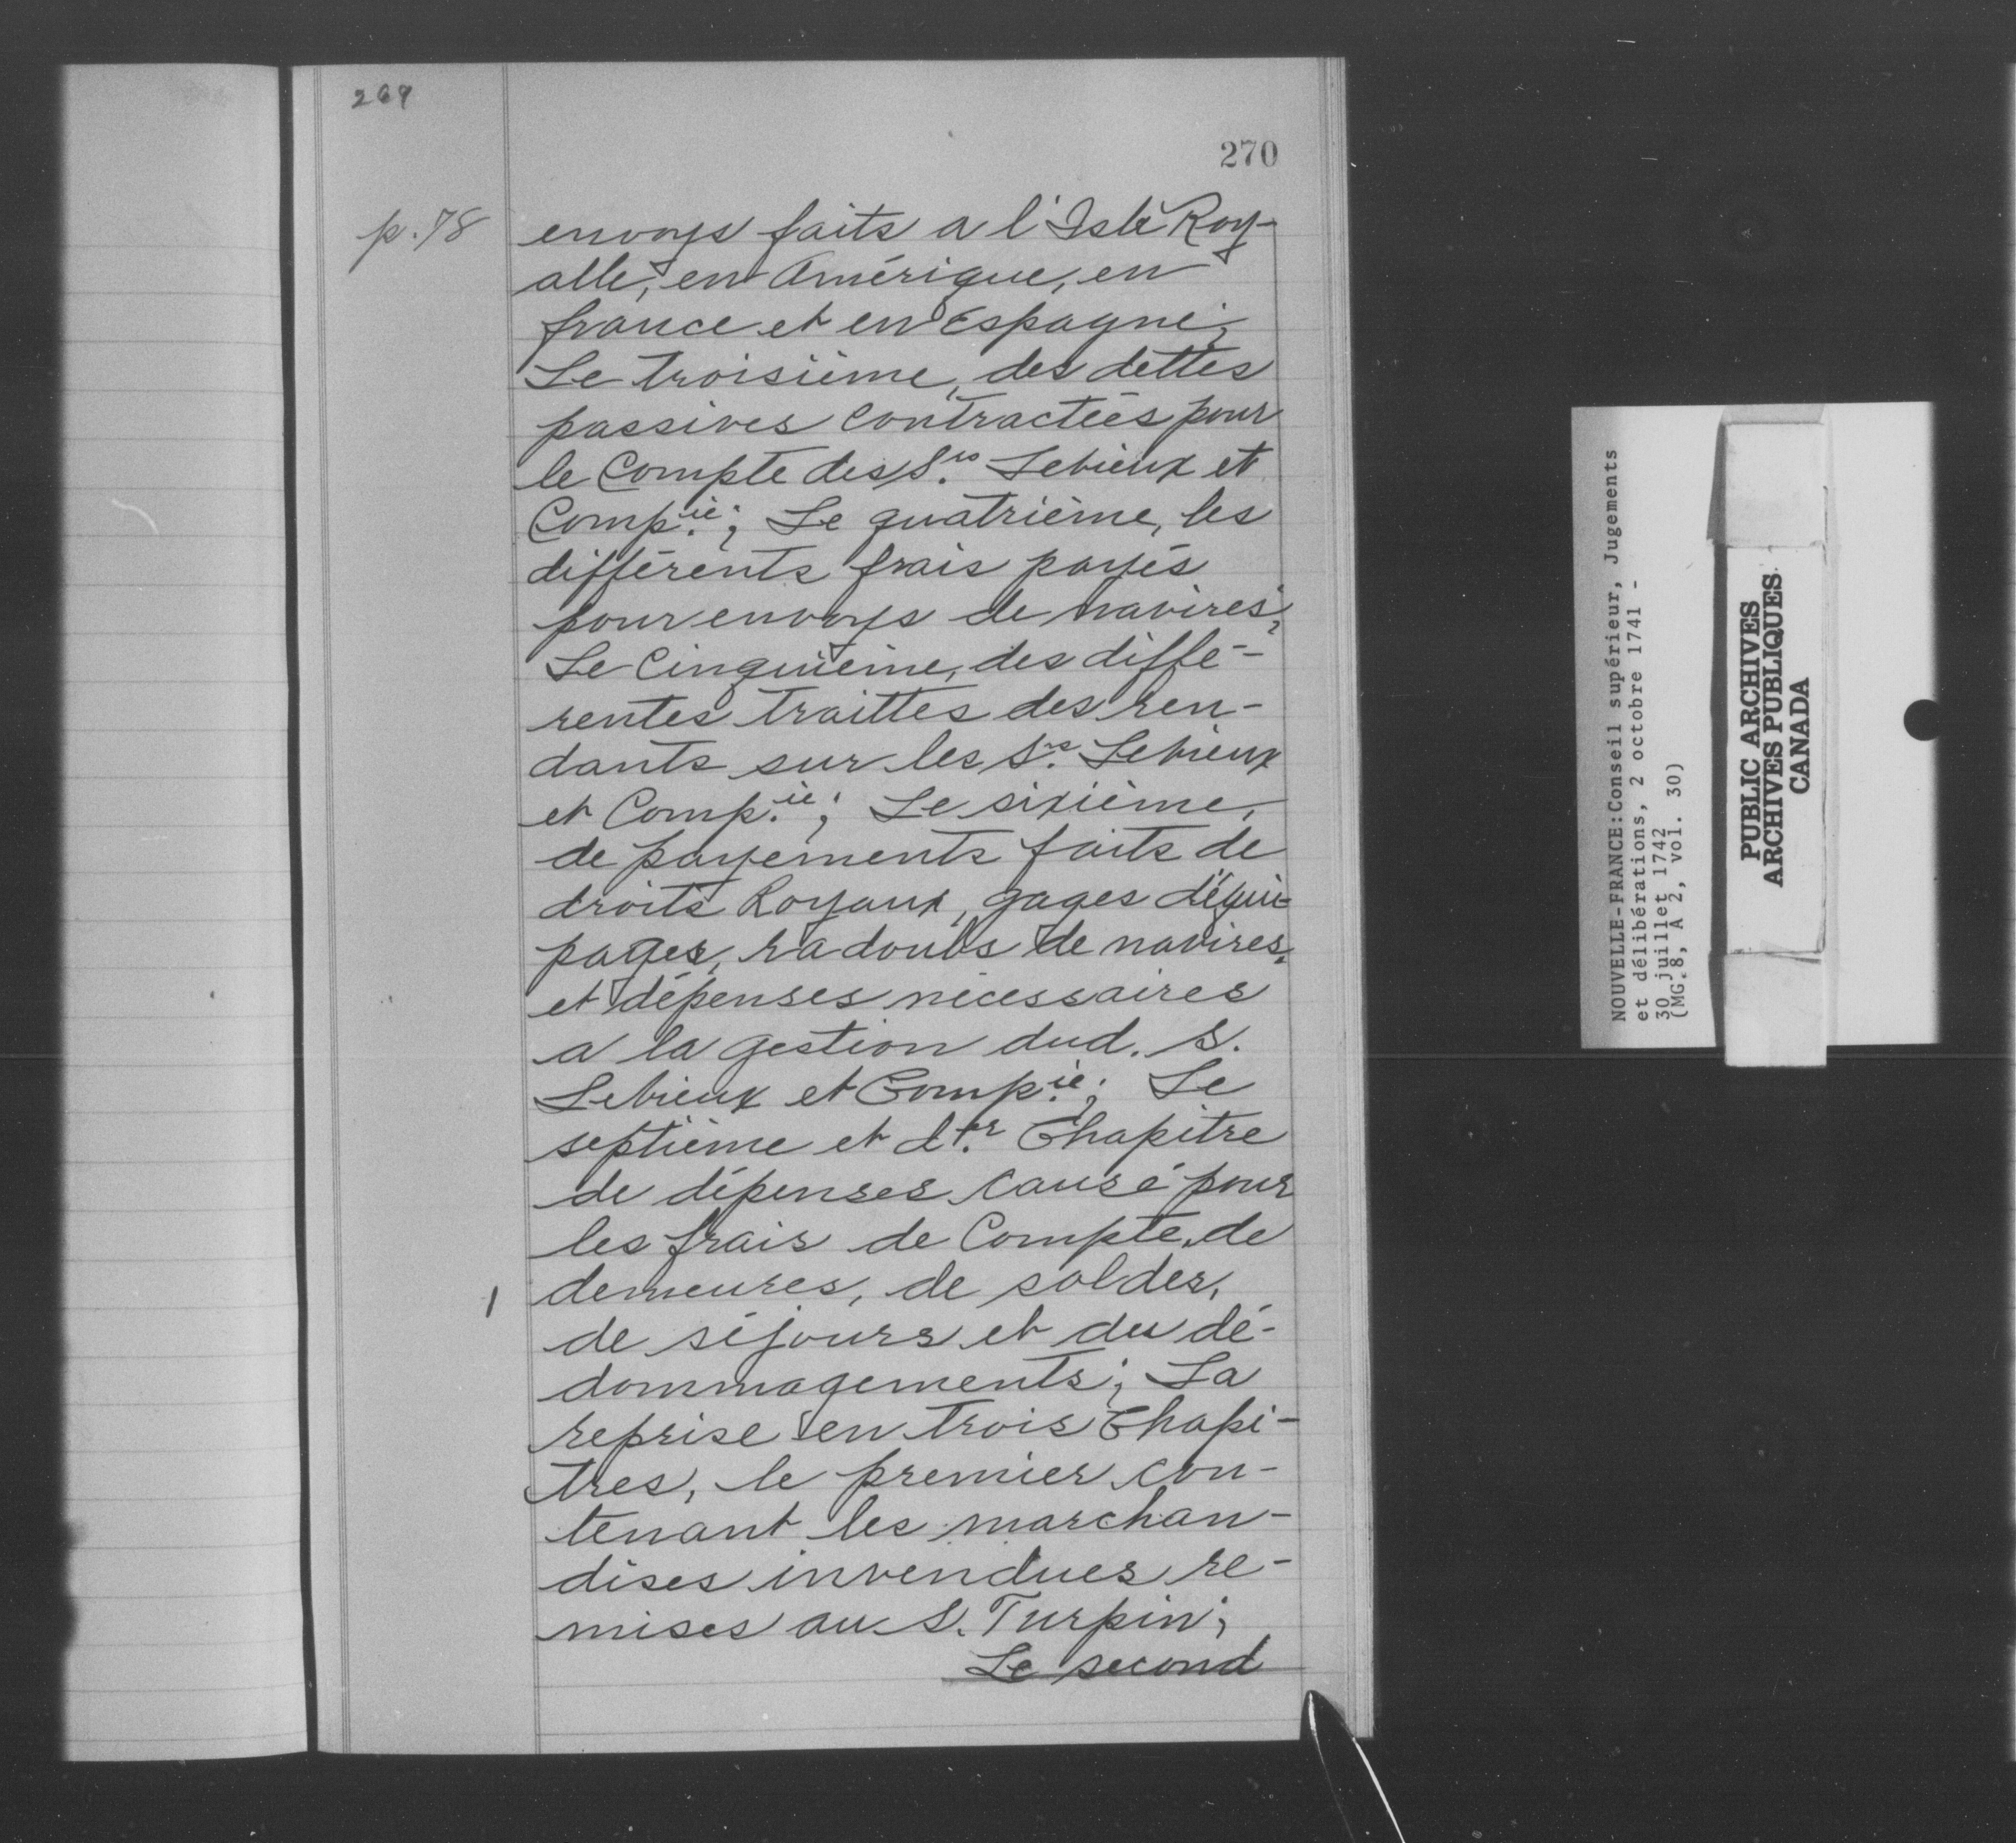 269
270
p. 78
envoys faits a l'Isle Roy-
alle, en Amérique, en
france et en Espagne;
Le troisième, des dettes
passives contractées pour
le Compte des Srs. Levieux et
Compie.; Le quatrième, les
différents frais payés
pour envoys de navires;
Le Cinquième, des diffé-
rentes traittes des ren-
dants sur les Srs. Levieux
et Compie.; Le sixième,
de payements faits de
droits Royaux, gages d'équi-
pages, radoubs de navires,
et dépenses nécessaires
a la gestion dud. S.
Levieux et Compie.; Le
septième et der. Chapitre
de dépenses causé pour
les frais de Compte, de
demeures, de soldes,
de séjours et du dé-
dommagements; La
reprise en trois Chapi-
tres, le premier con-
tenant les marchan-
dises invendues re-
mises au S. Turpin;
Le second
NOUVELLE-FRANCE:Conseil supérieur, Jugements
et délibérations, 2 octobre 1741 -
30 juillet 1742
(MG.8, A 2, vol. 30)
PUBLIC ARCHIVES
ARCHIVES PUBLIQUES
CANADA